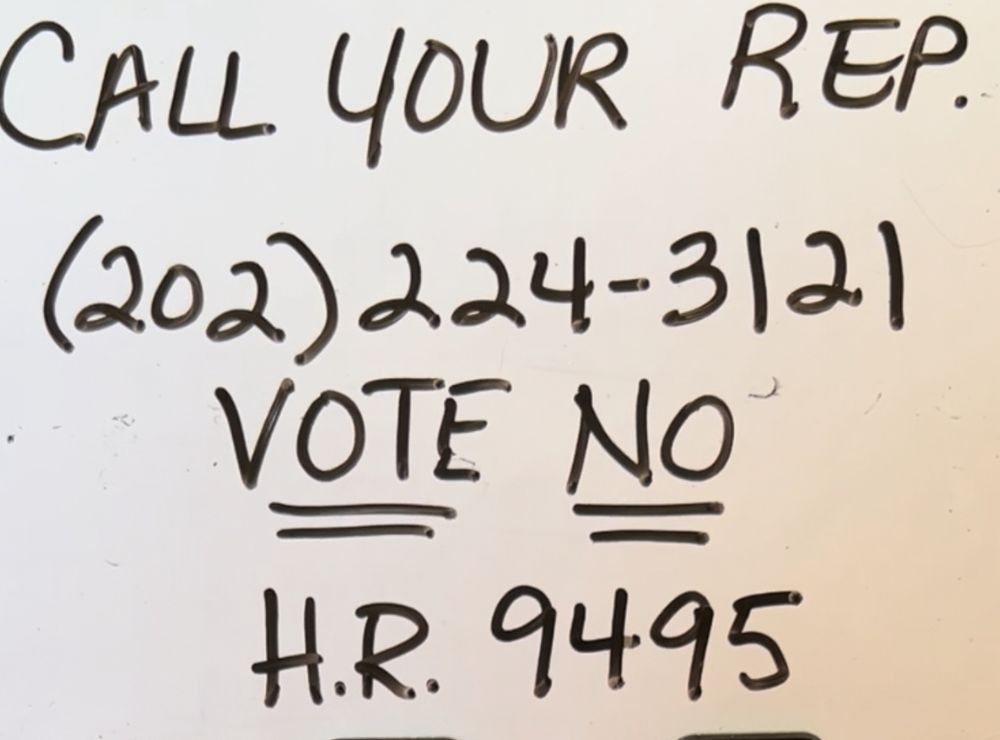 CALL YOUR REP.
(202) 224-3121
VOTE NO
H.R. 9495